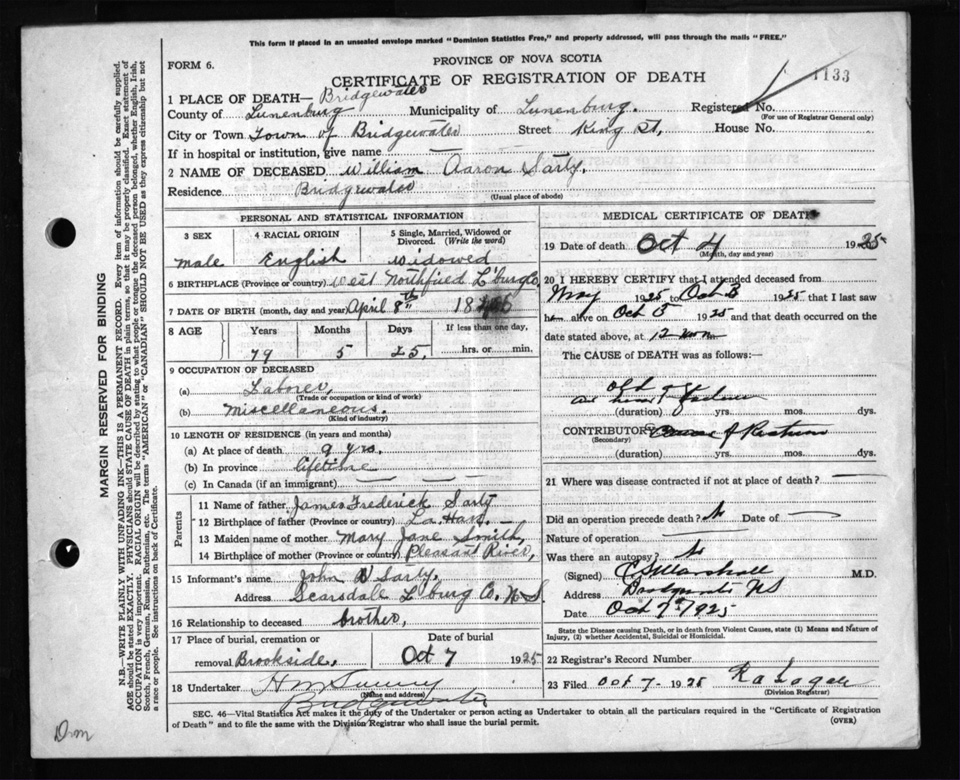 This form if placed in an unsealed envelope marked "Dominion Statistics Free," and properly addressed, will pass through the mails "FREE."
FORM 6.
PROVINCE OF NOVA SCOTIA
CERTIFICATE OF REGISTRATION OF DEATH
1133
1 PLACE OF DEATH— Bridgewater
County of Lunenburg Municipality of Lunenburg. Registered No.
(For use of Registrar General only)
City or Town Town of Bridgewater Street King St, House No.
If in hospital or institution, give name —
2 NAME OF DECEASED William Aaron Sarty.
Residence Bridgewater
(Usual place of abode)
PERSONAL AND STATISTICAL INFORMATION
3 SEX 4 RACIAL ORIGIN 5 Single, Married, Widowed or Divorced. (Write the word)
male English widowed
6 BIRTHPLACE (Province or country) West Northfield L'burg Co,
7 DATE OF BIRTH (month, day and year) April 8th 18
8 AGE Years Months Days If less than one day,
79 5 25, hrs. or min.
9 OCCUPATION OF DECEASED
(a) Laborer,
(Trade or occupation or kind of work)
(b) Miscellaneous.
(Kind of industry)
10 LENGTH OF RESIDENCE (in years and months)
(a) At place of death 9 yrs.
(b) In province lifetime
(c) In Canada (if an immigrant) — —
Parents
11 Name of father James Frederick Sarty
12 Birthplace of father (Province or country) La Have, —
13 Maiden name of mother Mary Jane Smith,
14 Birthplace of mother (Province or country) Pleasant River,
15 Informant's name John Sarty,
Address Scarsdale L'burg Co. N S.
16 Relationship to deceased brother,
17 Place of burial, cremation or removal Brookside, Date of burial Oct 7 1925
18 Undertaker
(Name and address)
Bridgewater
MEDICAL CERTIFICATE OF DEATH
19 Date of death Oct 4 1925
(Month, day and year)
20 I HEREBY CERTIFY that I attended deceased from
May 1925 to Oct 3 1925 that I last saw
h alive on Oct 3 1925 and that death occurred on the
date stated above, at 12 noon
The CAUSE of DEATH was as follows:
old
(duration) yrs. mos. dys.
CONTRIBUTORY
(Secondary)
(duration) yrs. mos. dys.
21 Where was disease contracted if not at place of death? —
Did an operation precede death? No Date of —
Nature of operation —
Was there an autopsy? No
(Signed) Marshall M.D.
Address Bridgewater NS
Date Oct 7th 1925
State the Disease causing Death, or in death from Violent Causes, state (1) Means and Nature of Injury, (2) whether Accidental, Suicidal or Homicidal.
22 Registrar's Record Number
23 Filed Oct 7 - 1925
(Division Registrar)
SEC. 46—Vital Statistics Act makes it the duty of the Undertaker or person acting as Undertaker to obtain all the particulars required in the "Certificate of Registration of Death" and to file the same with the Division Registrar who shall issue the burial permit. (OVER)
MARGIN RESERVED FOR BINDING
N.B.—WRITE PLAINLY WITH UNFADING INK—THIS IS A PERMANENT RECORD. Every item of information should be carefully supplied.
AGE should be stated EXACTLY. PHYSICIANS should STATE CAUSE OF DEATH in plain terms, so that it may be properly classified. Exact statement of
OCCUPATION is very important. RACIAL ORIGIN will be described by stating to what people or tongue the deceased person belonged, whether English, Irish,
Scotch, French, German, Russian, Ruthenian, etc. The terms "AMERICAN" or "CANADIAN" SHOULD NOT BE USED as they express citizenship but not
a race or people. See instructions on back of Certificate.